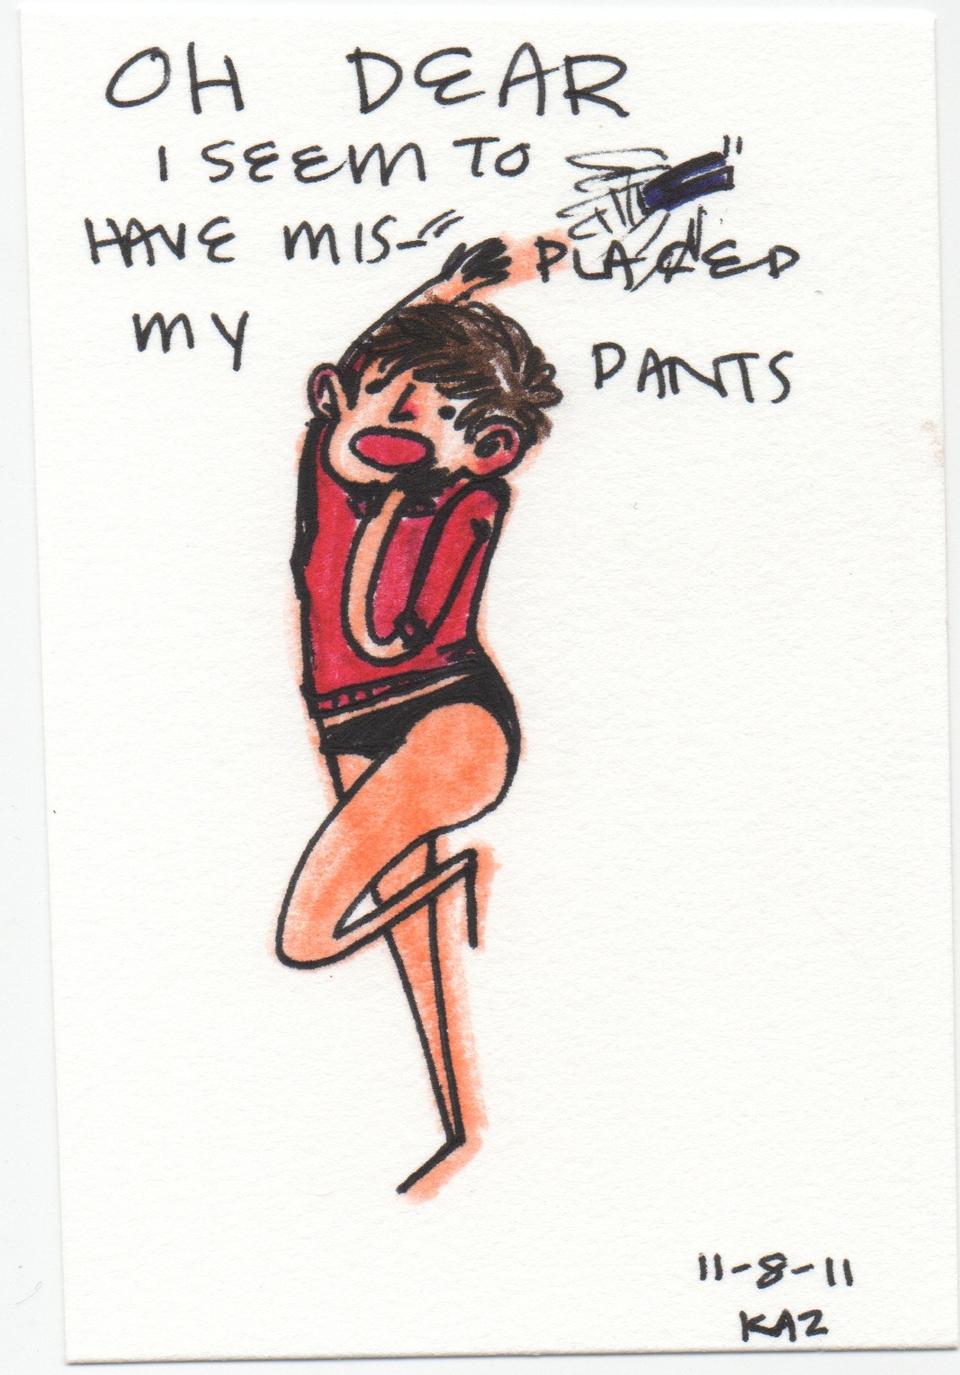 OH DEAR
I SEEM TO
HAVE MIS-PLACED
MY PANTS
11-8-11
KAZ